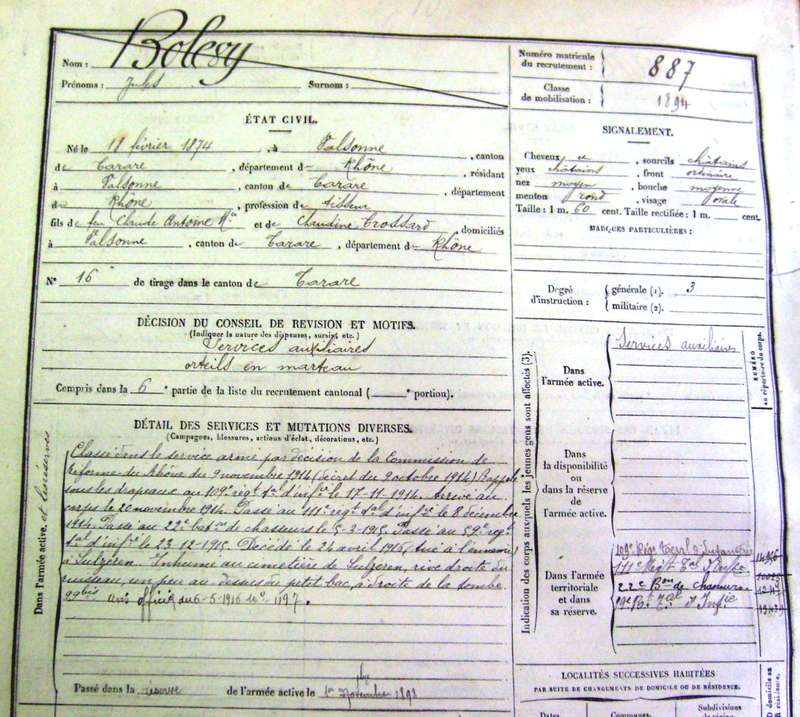 Nom : Bolesy
Prénoms : Jules Surnom :
Numéro matricule du recrutement : 887
Classe de mobilisation : 1894
ÉTAT CIVIL.
Né le 18 février 1874, à Valsonne, canton
de Tarare, département du Rhône, résidant
à Valsonne, canton de Tarare, département
du Rhône, profession de tisseur
fils de feu Claude Antoine et de Claudine Trossard domiciliés
à Valsonne, canton de Tarare, département du Rhône
N° 16 de tirage dans le canton de Tarare
SIGNALEMENT.
Cheveux et, sourcils châtains
yeux châtains, front ordinaire
nez moyen, bouche moyenne
menton rond, visage ovale
Taille : 1 m. 60 cent. Taille rectifiée : 1 m. cent.
MARQUES PARTICULIÈRES :
Degré d'instruction : générale (1). 3
militaire (2).
DÉCISION DU CONSEIL DE REVISION ET MOTIFS.
(Indiquer la nature des dispenses, sursis, etc.)
Services auxiliaires
orteils en marteau
Compris dans la 6e partie de la liste du recrutement cantonal ( e portion).
DÉTAIL DES SERVICES ET MUTATIONS DIVERSES.
(Campagnes, blessures, actions d'éclat, décorations, etc.)
Dans l'armée active, et
Classé dans le service armé par décision de la Commission de
Réforme du Rhône du 9 novembre 1914 (décret du 9 octobre 1914) Rappelé
sous les drapeaux au 109e régt d'infie le 17-11-1914. Arrivé au
corps le 20 novembre 1914. Passé au 111e régt d'infie le 8 décembre
1914. Passé au 22e Baton de chasseurs le 5-3-1915. Passé au 59e régt
d'infie le 23-12-1915. Décédé le 24 avril 1916, tué à l'ennemi
à Sulzeren. Inhumé au cimetière de Sulzeren, rive droite du
ruisseau, un peu au-dessus du petit bac, à droite de la tombe
99bis Avis officiel du 6-5-1916 No 1197.
Passé dans la réserve de l'armée active le 1er Novembre 1898
Indication des corps auxquels les jeunes gens sont affectés (3).
NUMÉRO au répertoire du corps.
Dans l'armée active. Services auxiliaires
Dans la disponibilité ou dans la réserve de l'armée active.
Dans l'armée territoriale et dans sa réserve.
109e Rég. Terral d'Infanterie
111e Régt
22e Bon de Chasseurs
d'Infie
LOCALITÉS SUCCESSIVES HABITÉES
PAR SUITE DE CHANGEMENTS DE DOMICILE OU DE RÉSIDENCE.
Dates. Communes. Subdivisions